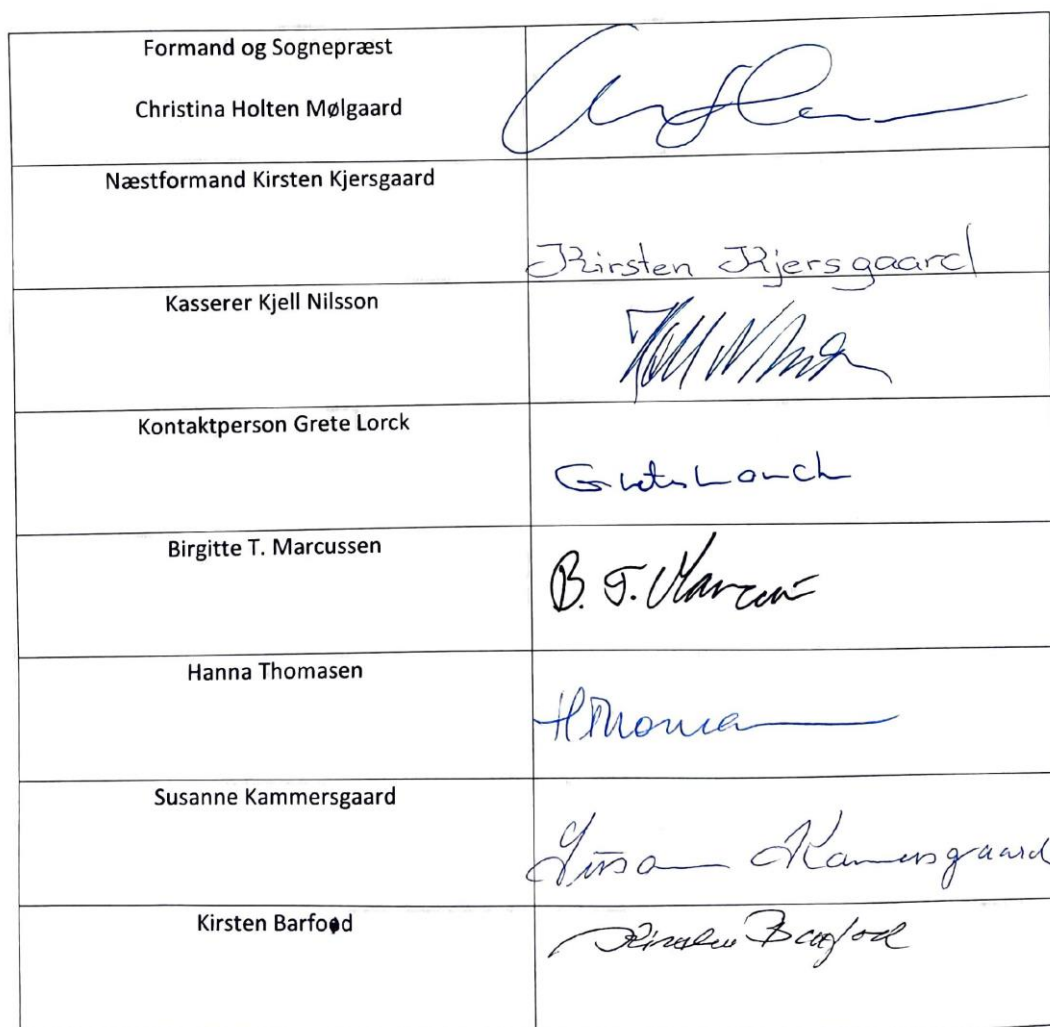 Formand og Sognepræst
Christina Holten Mølgaard
Næstformand Kirsten Kjersgaard
Kirsten Kjersgaard
Kasserer Kjell Nilsson
Kontaktperson Grete Lorck
Birgitte T. Marcussen
B. T. Marcussen
Hanna Thomasen
Susanne Kammersgaard
Kammersgaard
Kirsten Barfoed
Kirsten Barfoed